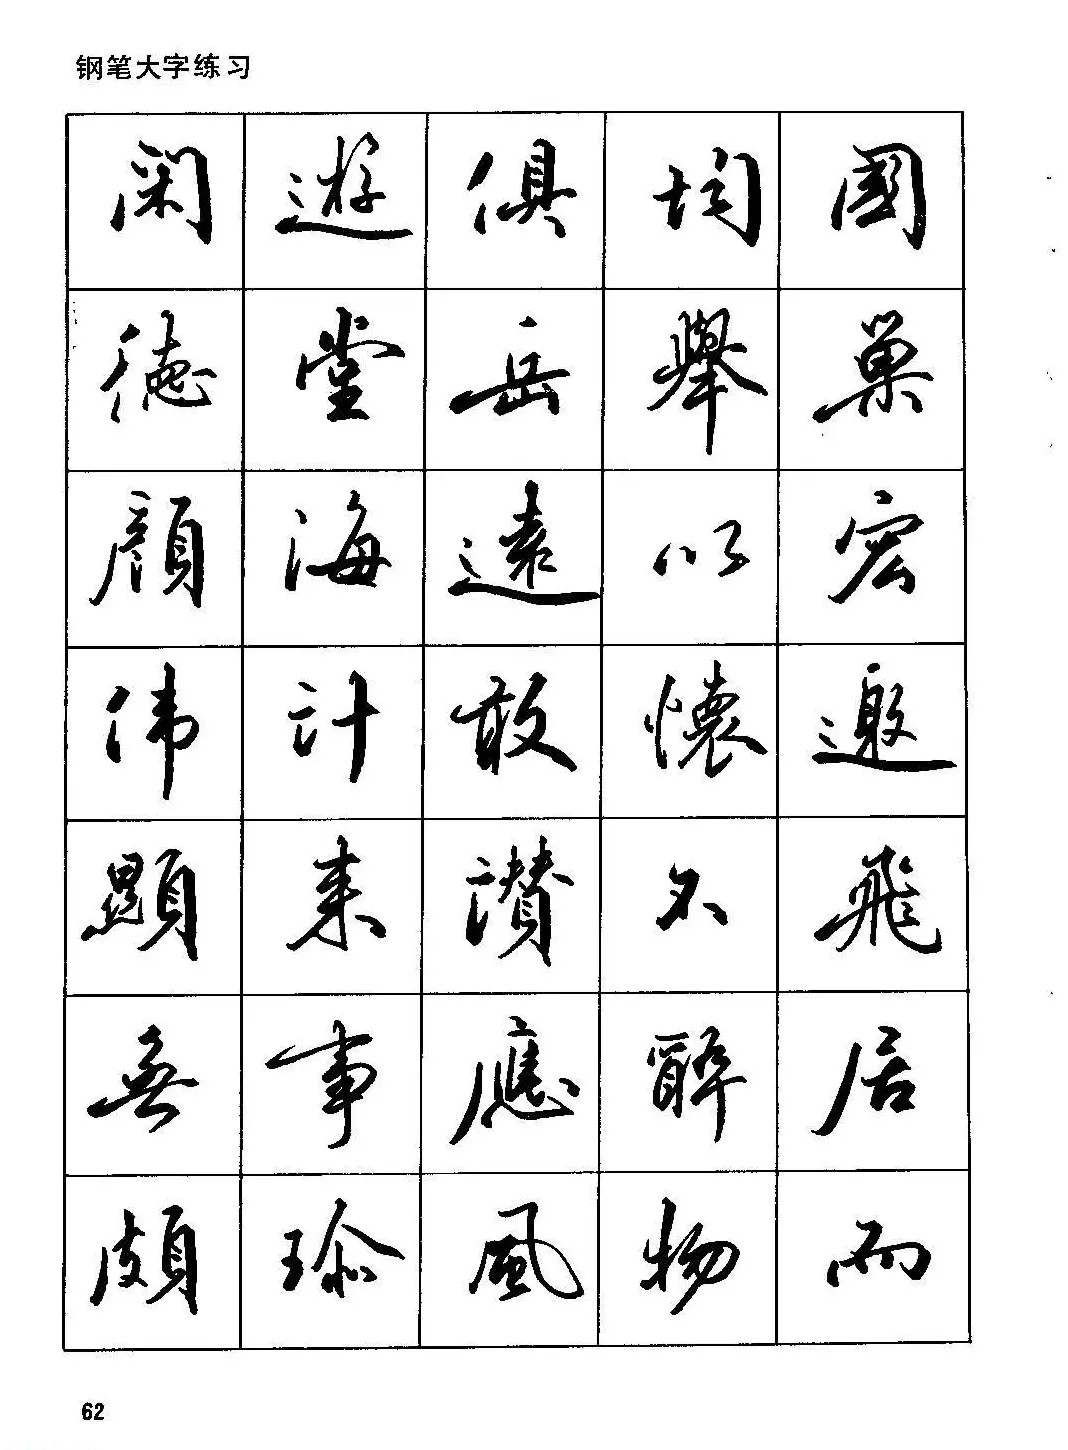 钢笔大字练习
闲 遊 俱 均 國
德 堂 岳 舉 巢
顔 海 遠 以 宏
伟 計 敢 懷 邀
顯 来 讃 不 飛
無 事 應 醉 居
頗 珍 風 物 而
62